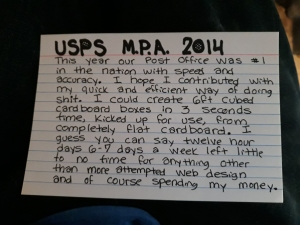 USPS M.P.A. 2014
This year our Post Office was #1
in the nation with speed and
accuracy. I hope I contributed with
my quick and efficient way of doing
shit. I could create 6ft cubed
cardboard boxes in 3 seconds
time, kicked up for use, from
completely flat cardboard. I
guess you can say twelve hour
days 6-7 days a week left little
to no time for anything other
than more attempted web design
and of course spending my money.